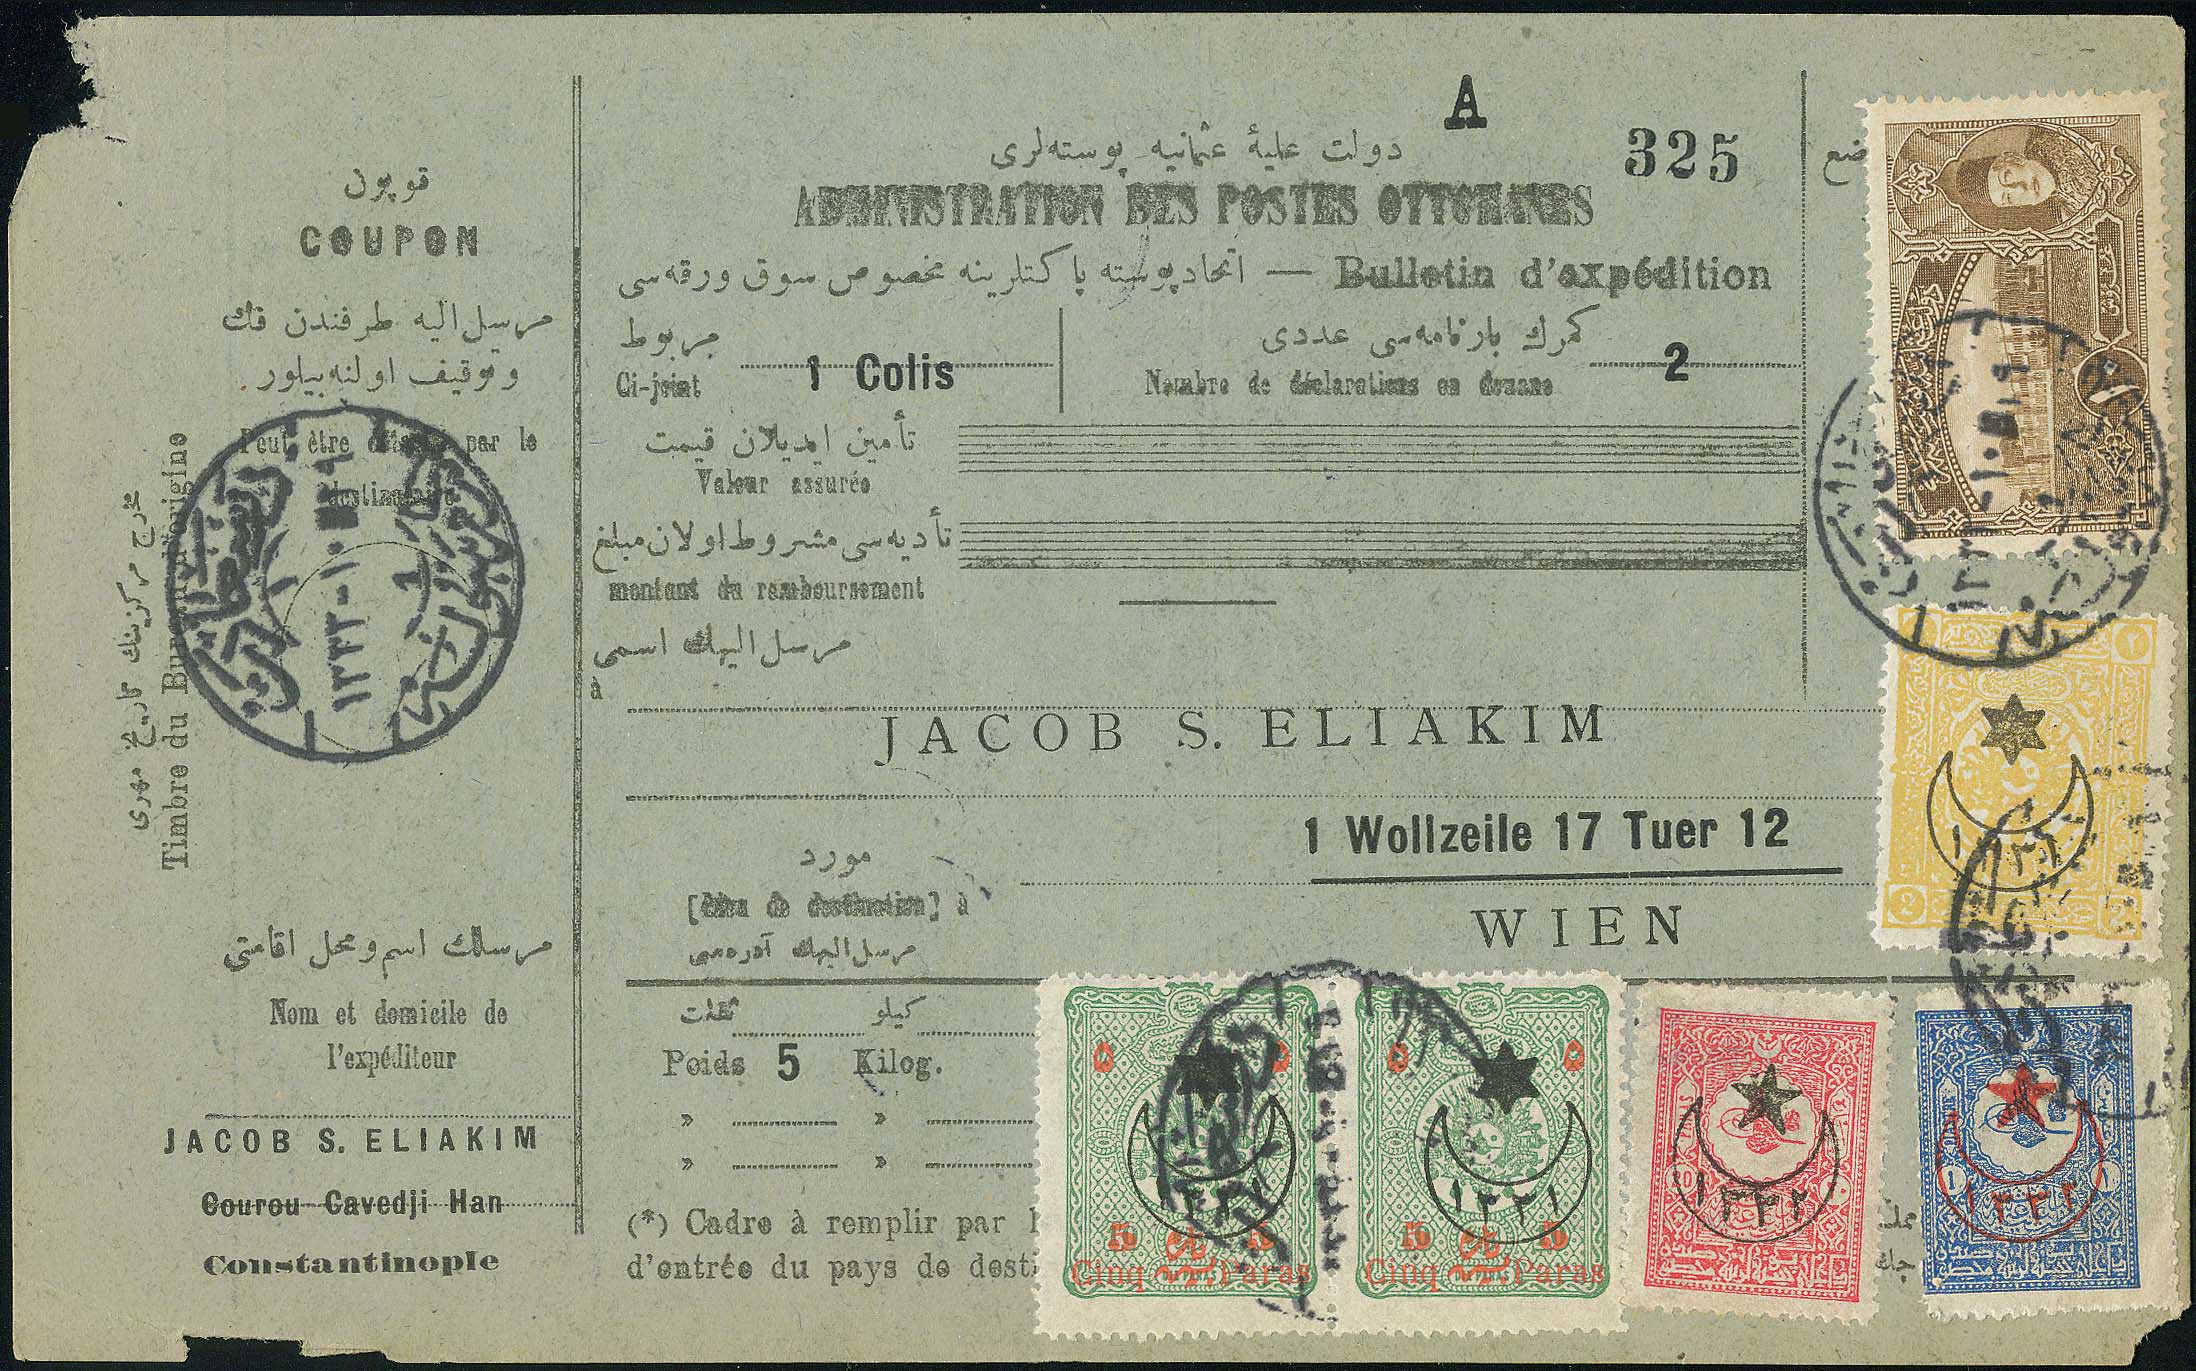 قوپون
COUPON
مرسل اليه طرفندن فك
و توقيف اولنه بيلور
Peut être détaché par le
destinataire
مخرج مركزينك تاريخ مهرى
Timbre du Bureau d'origine
١٣٣٣-١٠
مرسلك اسم و محل اقامتى
Nom et domicile de
l'expéditeur
JACOB S. ELIAKIM
Courou-Cavedji Han
Constantinople
A
325
دولت عليۀ عثمانيه پوسته لرى
ADMINISTRATION DES POSTES OTTOMANES
اتحاد پوسته پاكتلرينه مخصوص سوق ورقه سى — Bulletin d'expédition
مربوط
Ci-joint 1 Colis
كمرك بارنامه سى عددى
Nombre de déclarations en douane 2
تأمين ايديلان قيمت
Valeur assurée
تأديه سى مشروط اولان مبلغ
montant du remboursement
مرسل اليهك اسمى
à
JACOB S. ELIAKIM
1 Wollzeile 17 Tuer 12
مورد
[Lieu de destination] à
WIEN
مرسل اليهك آدره سى
ثقلت كيلو
Poids 5 Kilog.
» »
» »
(*) Cadre à remplir par
d'entrée du pays de desti
وضع
٢ ٢
١٣٣١
2 2
٥ ٥
١٣٣١
5 5
Cinq Paras
DIX PARAS
٥ ٥
١٣٣١
5 5
Cinq Paras
DIX PARAS
20 PARAS
١٣٣٢
1 PIASTRE
١٣٣٢